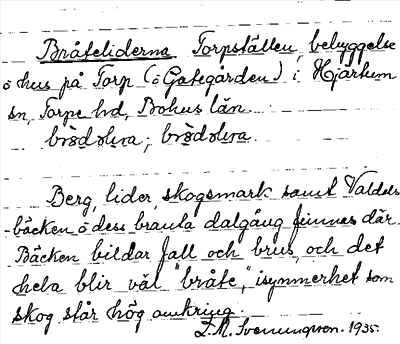 Bråteliderna Torpställen, bebyggelse
o hus på Torp (o Gategården) i Hjärtum
sn, Torpe hd, Bohus län.
Berg, lider, skogsmark samt Valdals
-bäcken o dess branta dalgång finnas där.
Bäcken bildar fall och brus, och det
hela blir väl "bråte", isynnerhet som
skog står hög omkring.
L.M. Svenungsson. 1935.